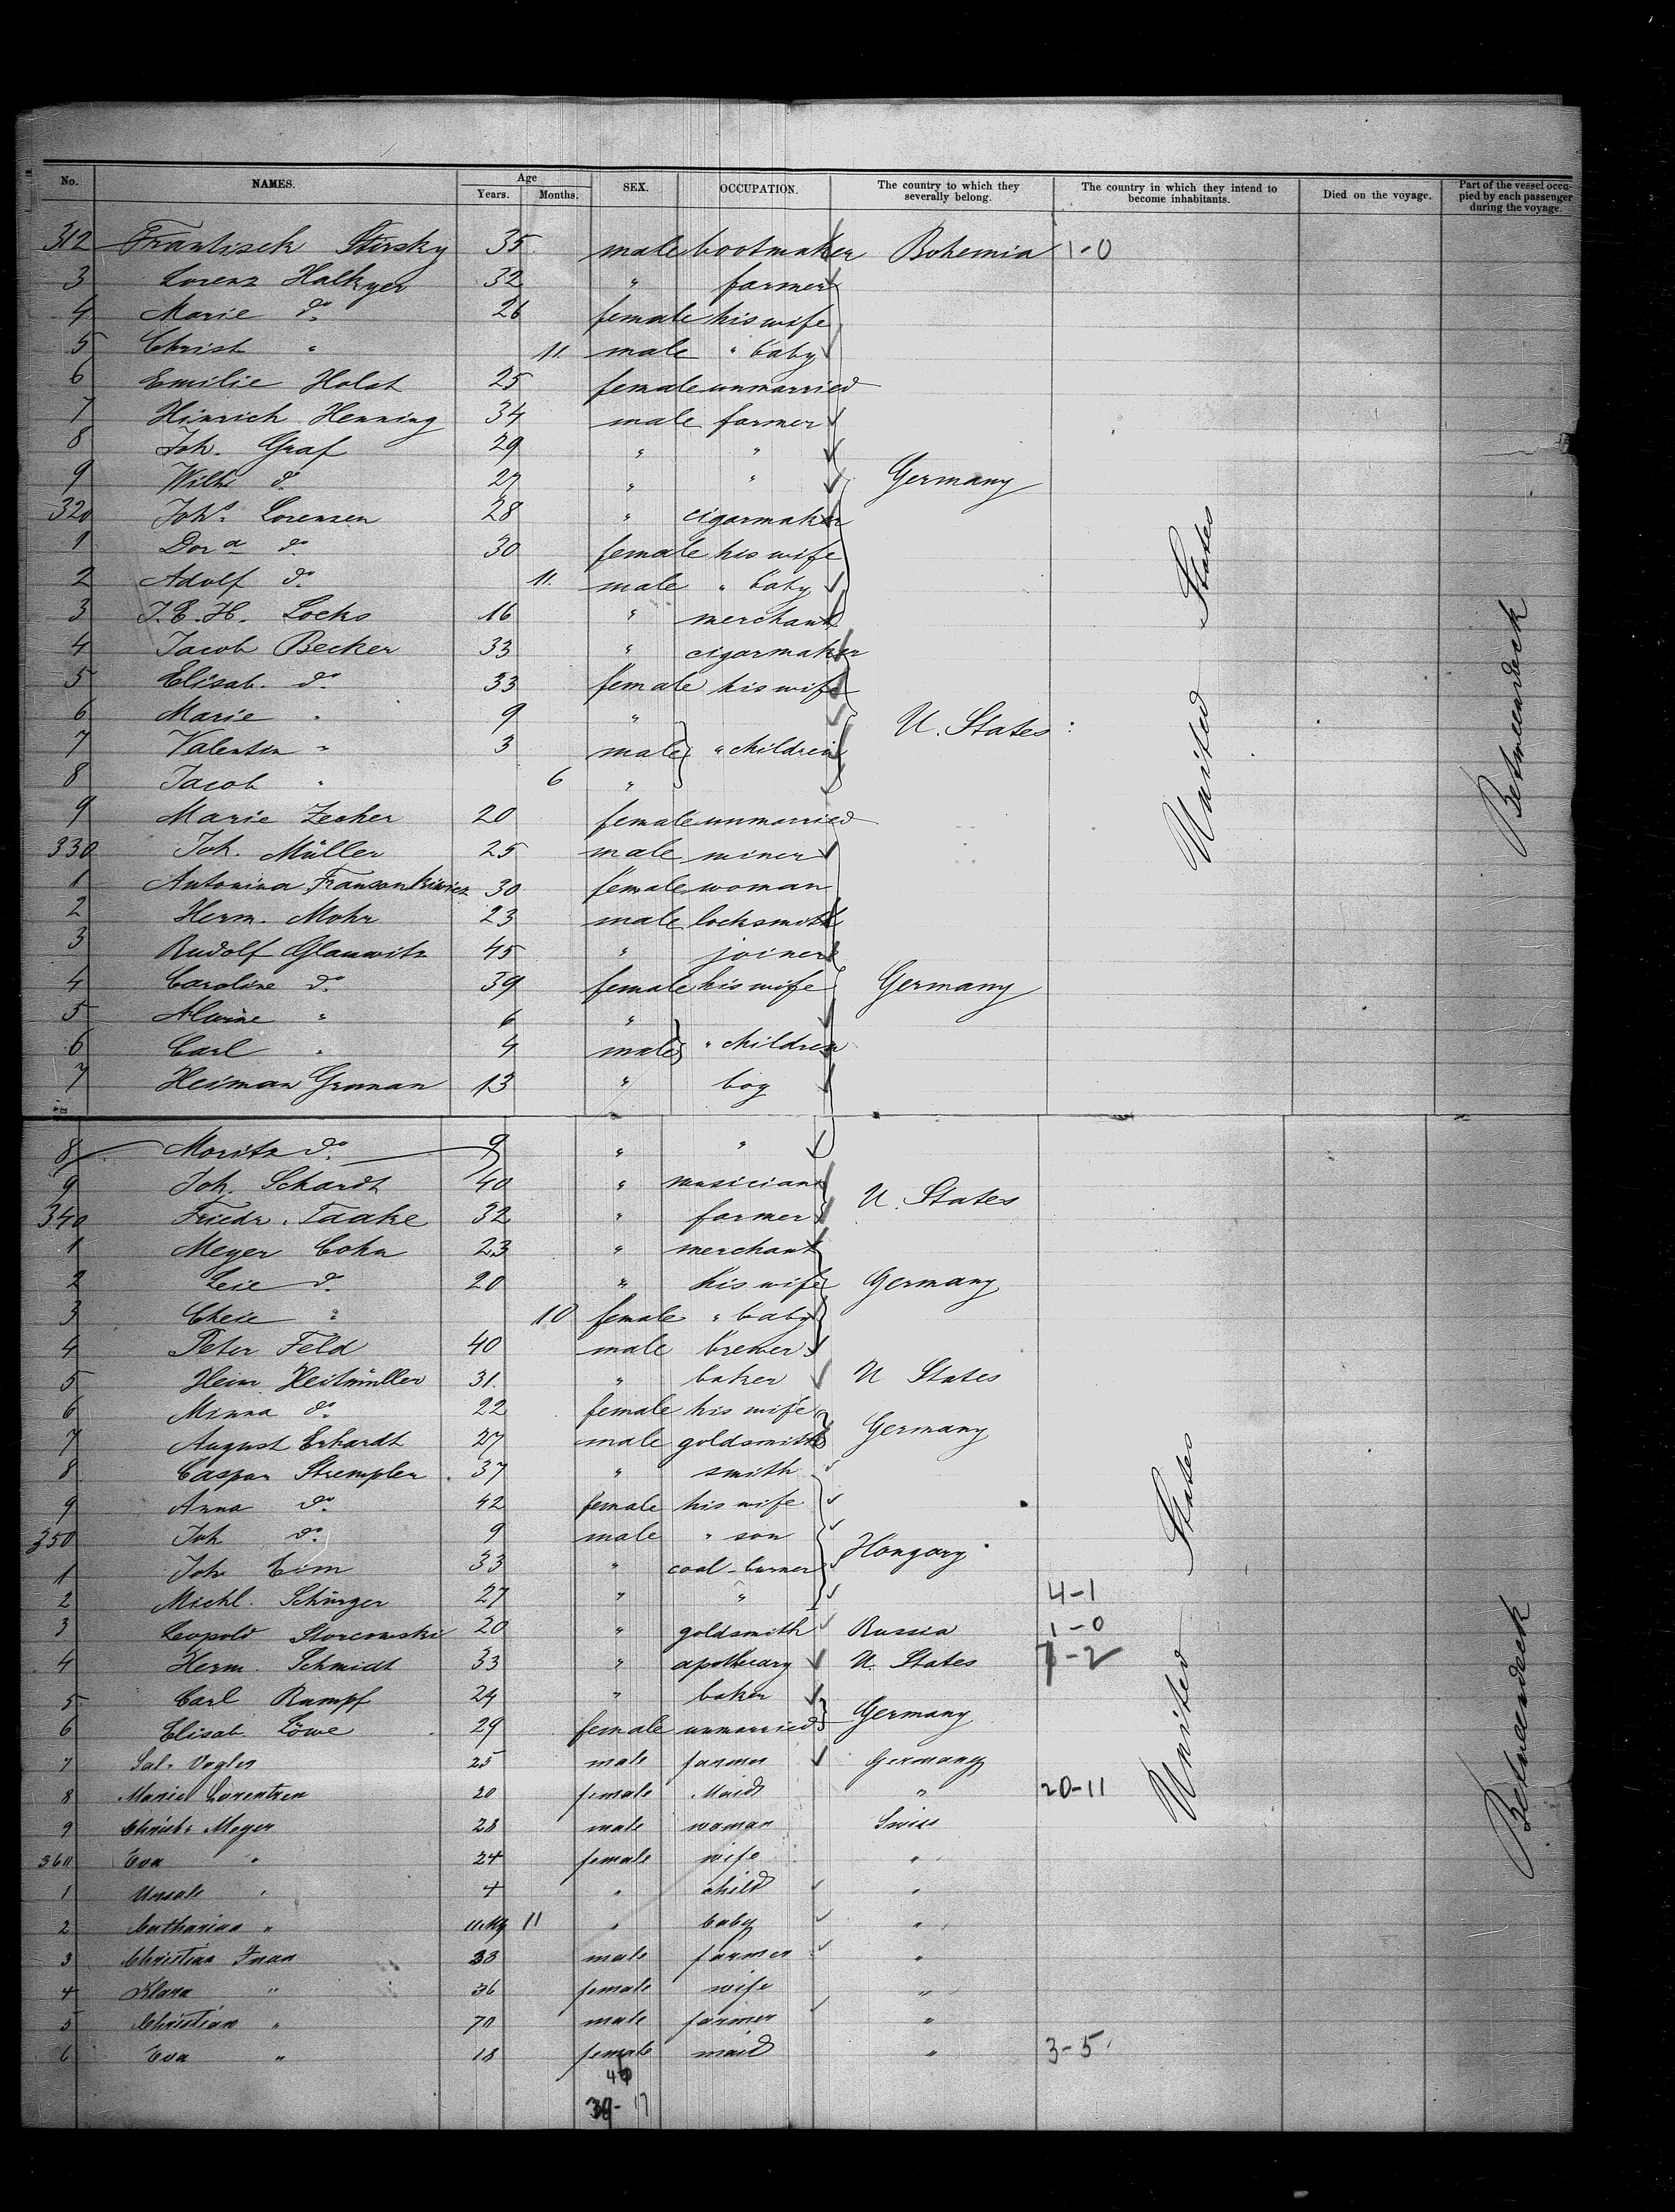 No. NAMES. Age Years. Months. SEX. OCCUPATION. The country to which they severally belong. The country in which they intend to become inhabitants. Died on the voyage. Part of the vessel occupied by each passenger during the voyage.
312 Frantisek Stirsky 35 male bootmaker Bohemia 1-0
3 Lorenz Halkyer 32 " farmer
4 Marie do 26 female his wife
5 Christ " 11. male " baby
6 Emilie Holst 25 female unmarried
7 Hinrich Henning 34 male farmer
8 Joh. Graf 29 " "
9 Wilh. do 27 " " Germany
320 Johs. Lorensen 28 " cigarmaker
1 Dora do 30 female his wife
2 Adolf do 11. male " baby
3 J.E.H. Locks 16 " merchant
4 Jacob Becker 33 " cigarmaker
5 Elisab. do 33 female his wife
6 Marie " 9 " U. States
7 Valentin " 3 male " children
8 Jacob " 6 "
9 Marie Zecher 20 female unmarried
330 Joh. Müller 25 male miner
1 Antonina 30 female woman
2 Herm. Mohr 23 male locksmith
3 Rudolf Glauwitz 45 " joiner
4 Caroline do 39 female his wife Germany
5 Alwine " 6 "
6 Carl " 4 male " children
7 Heiman Gruman 13 " boy
United States
Betweendeck
8 Moritz do 9 " "
9 Joh. Schardt 40 " musician U. States
340 Friedr. Taake 32 " farmer
1 Meyer Cohn 23 " merchant
2 Leie do 20 " his wife Germany
3 Cheie " 10 female " baby
4 Peter Feld 40 male brewer
5 Hein Heitmüller 31. " baker U States
6 Minna do 22 female his wife Germany
7 August Erhardt 27 male goldsmith
8 Caspar Strempler 37 " smith
9 Anna do 42 female his wife
350 Joh do 9 male " son Hongary
1 Joh Eim 33 " coal-burner
2 Michl. Schürger 27 " " 4-1
3 Leopold Storcowski 20 " goldsmith Russia 1-0
4 Herm. Schmidt 33 " apothecary U. States 7-2
5 Carl Rumpf 24 " baker Germany
6 Elisab. Löwe 29 female unmarried
7 Sal. Vogler 25 male farmer Germany
8 Marie Lorentzen 20 female Maid " 20-11
9 Christ. Meyer 28 male woman Swiss
360 Eva " 24 female wife "
1 Ursale " 4 " child "
2 Catharina " 11 " baby "
3 Christian 33 male farmer "
4 Klara " 36 female wife "
5 Christian " 70 male farmer "
6 Eva " 18 female maid " 3-5
United States
Betweendeck
39-17